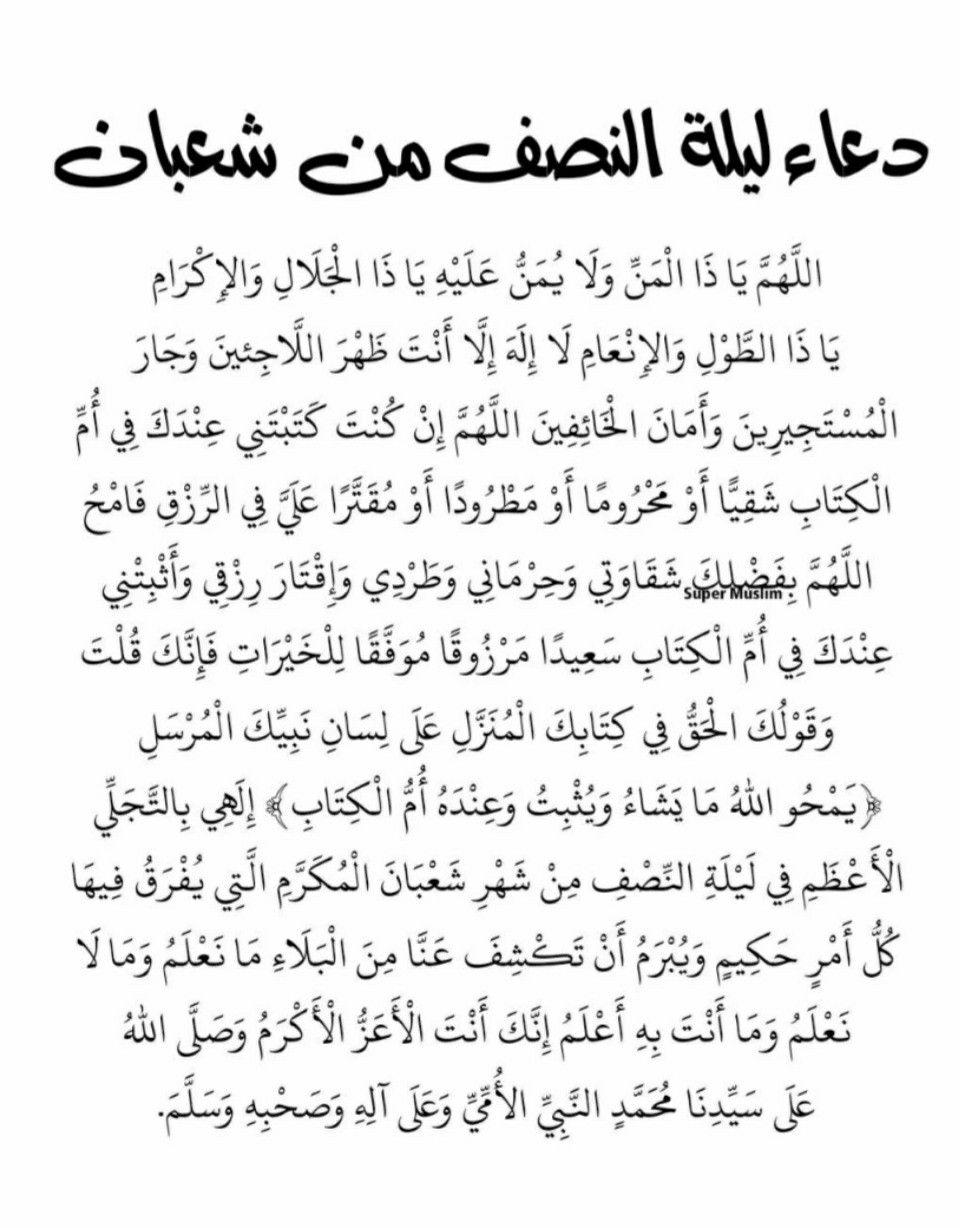 دعاء ليلة النصف من شعبان
اللَّهُمَّ يَا ذَا الْمَنِّ وَلَا يُمَنُّ عَلَيْهِ يَا ذَا الْجَلَالِ وَالإِكْرَامِ
يَا ذَا الطَّوْلِ وَالإِنْعَامِ لَا إِلَهَ إِلَّا أَنْتَ ظَهْرَ اللَّاجِئينَ وَجَارَ
الْمُسْتَجِيرِينَ وَأَمَانَ الْخَائِفِينَ اللَّهُمَّ إِنْ كُنْتَ كَتَبْتَنِي عِنْدَكَ فِي أُمِّ
الْكِتَابِ شَقِيًّا أَوْ مَحْرُومًا أَوْ مَطْرُودًا أَوْ مُقَتَّرًا عَلَيَّ فِي الرِّزْقِ فَامْحُ
اللَّهُمَّ بِفَضْلِكَ شَقَاوَتِي وَحِرْمَانِي وَطَرْدِي وَإِقْتَارَ رِزْقِي وَأَثْبِتْنِي
Super Muslim
عِنْدَكَ فِي أُمِّ الْكِتَابِ سَعِيدًا مَرْزُوقًا مُوَفَّقًا لِلْخَيْرَاتِ فَإِنَّكَ قُلْتَ
وَقَوْلُكَ الْحَقُّ فِي كِتَابِكَ الْمُنَزَّلِ عَلَى لِسَانِ نَبِيِّكَ الْمُرْسَلِ
﴿يَمْحُو اللهُ مَا يَشَاءُ وَيُثْبِتُ وَعِنْدَهُ أُمُّ الْكِتَابِ﴾ إِلَهِي بِالتَّجَلِّي
الْأَعْظَمِ فِي لَيْلَةِ النِّصْفِ مِنْ شَهْرِ شَعْبَانَ الْمُكَرَّمِ الَّتِي يُفْرَقُ فِيهَا
كُلُّ أَمْرٍ حَكِيمٍ وَيُبْرَمُ أَنْ تَكْشِفَ عَنَّا مِنَ الْبَلَاءِ مَا نَعْلَمُ وَمَا لَا
نَعْلَمُ وَمَا أَنْتَ بِهِ أَعْلَمُ إِنَّكَ أَنْتَ الْأَعَزُّ الْأَكْرَمُ وَصَلَّى اللهُ
عَلَى سَيِّدِنَا مُحَمَّدٍ النَّبِيِّ الأُمِّيِّ وَعَلَى آلِهِ وَصَحْبِهِ وَسَلَّمَ.